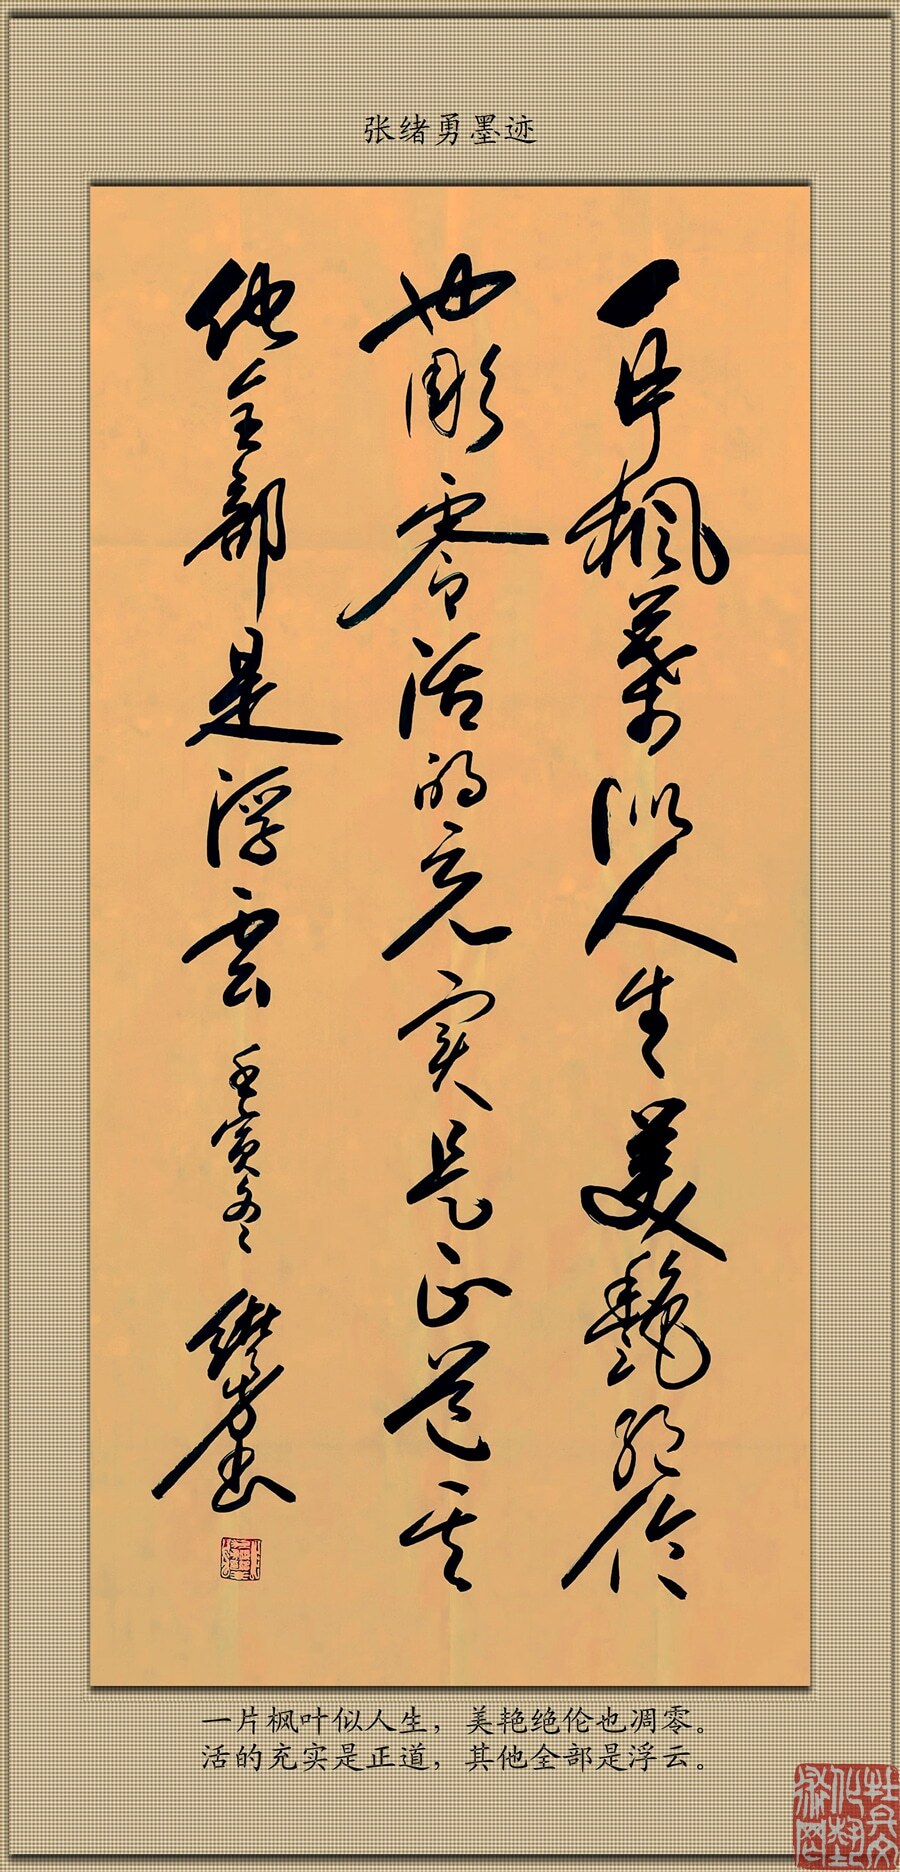 张绪勇墨迹
一片楓葉似人生美艷絕倫
也彫零活的充实是正道其
他全部是浮雲 壬寅冬 緒勇書
一片枫叶似人生，美艳绝伦也凋零。
活的充实是正道，其他全部是浮云。